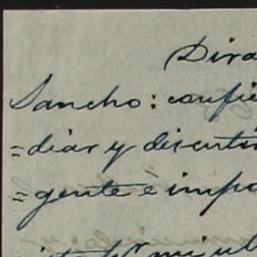 Dira
Sancho: confie
=diar y discutir
=gente è impa